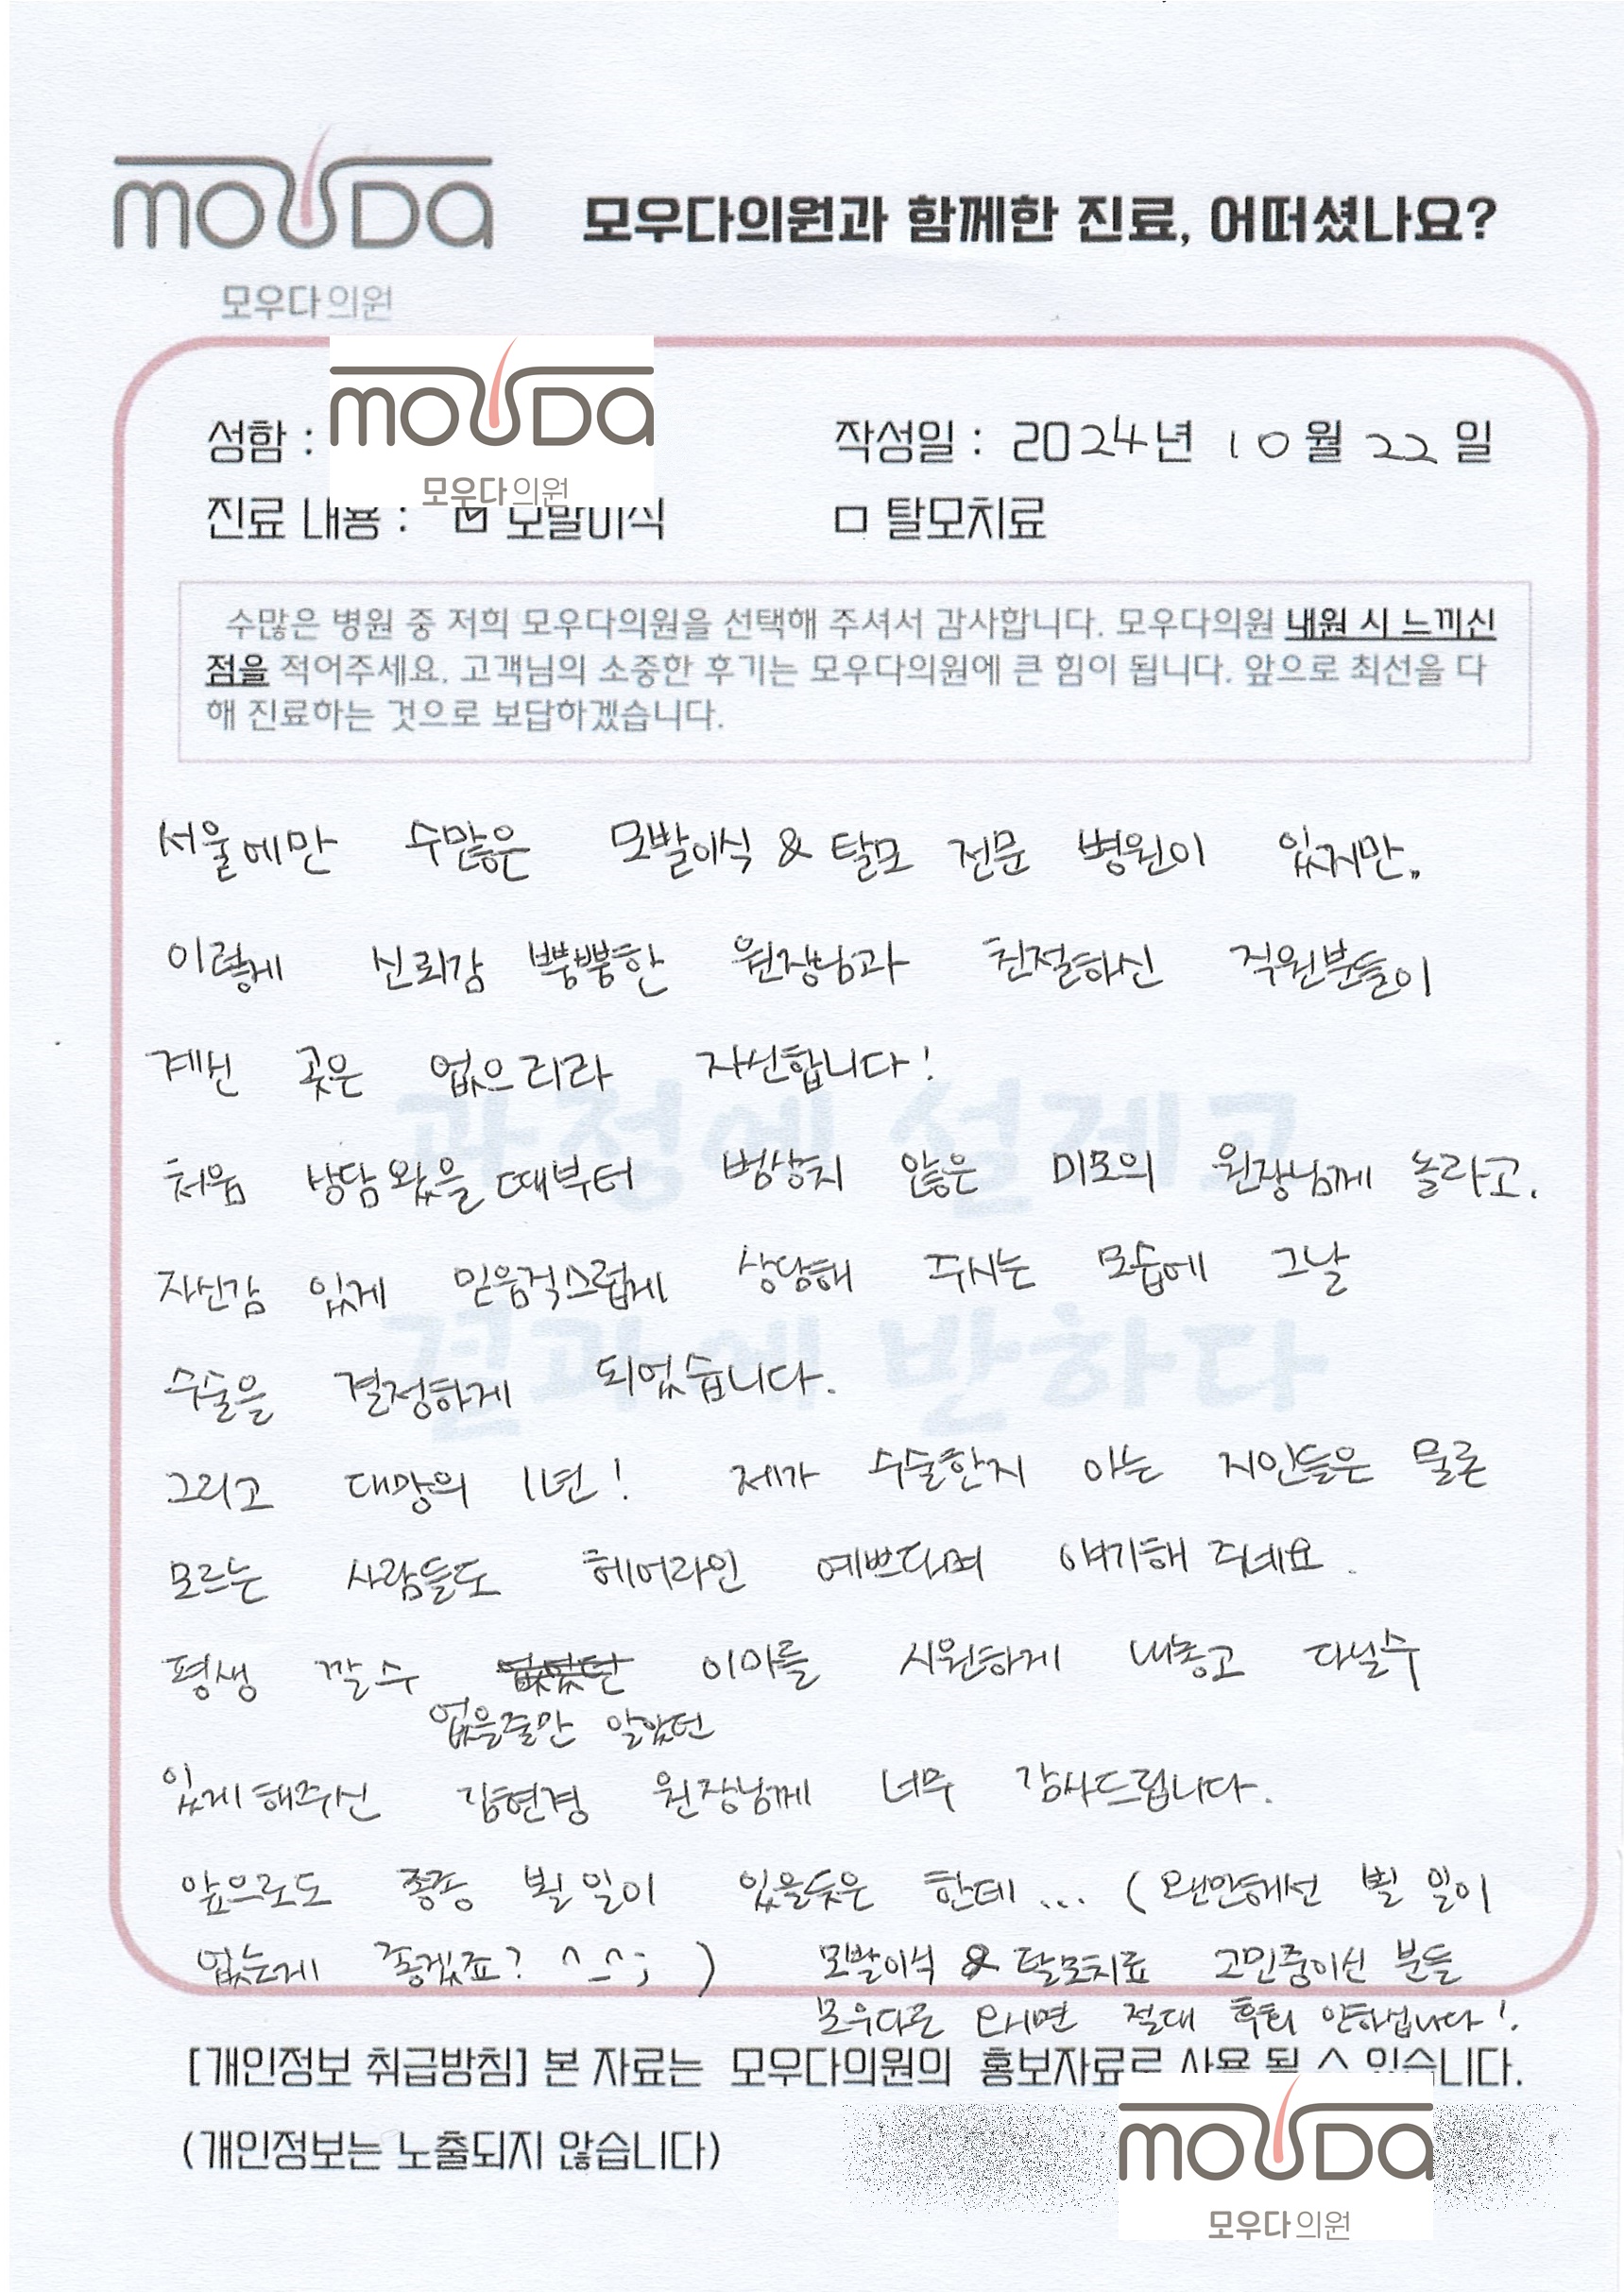 mouDa
모우다의원과 함께한 진료, 어떠셨나요?
모우다의원
mouDa
모우다의원
성함 :
작성일 : 2024년 10월 22일
진료 내용 : ☑ 모발이식
□ 탈모치료
수많은 병원 중 저희 모우다의원을 선택해 주셔서 감사합니다. 모우다의원 내원 시 느끼신
점을 적어주세요. 고객님의 소중한 후기는 모우다의원에 큰 힘이 됩니다. 앞으로 최선을 다
해 진료하는 것으로 보답하겠습니다.
과정에 설레고
결과에 반하다
서울에만 수많은 모발이식 & 탈모 전문 병원이 있지만,
이렇게 신뢰감 뿜뿜한 원장님과 친절하신 직원분들이
계신 곳은 없으리라 자신합니다!
처음 상담 왔을 때부터 범상치 않은 미모의 원장님께 놀라고,
자신감 있게 믿음직스럽게 상담해 주시는 모습에 그날
수술을 결정하게 되었습니다.
그리고 대망의 1년! 제가 수술한지 아는 지인들은 물론
모르는 사람들도 헤어라인 예쁘다며 얘기해 주네요.
평생 깔 수 이마를 시원하게 내놓고 다닐수
없을줄만 알았던
있게 해주신 김현경 원장님께 너무 감사드립니다.
앞으로도 종종 뵐 일이 있을듯은 한데... (왠만해선 뵐 일이
없는게 좋겠죠? ^_^; ) 모발이식 & 탈모치료 고민중이신 분들
모우다로 오시면 절대 후회 안하십니다!
[개인정보 취급방침] 본 자료는 모우다의원의 홍보자료로 사용 될 수 있습니다.
(개인정보는 노출되지 않습니다)
mouDa
모우다의원